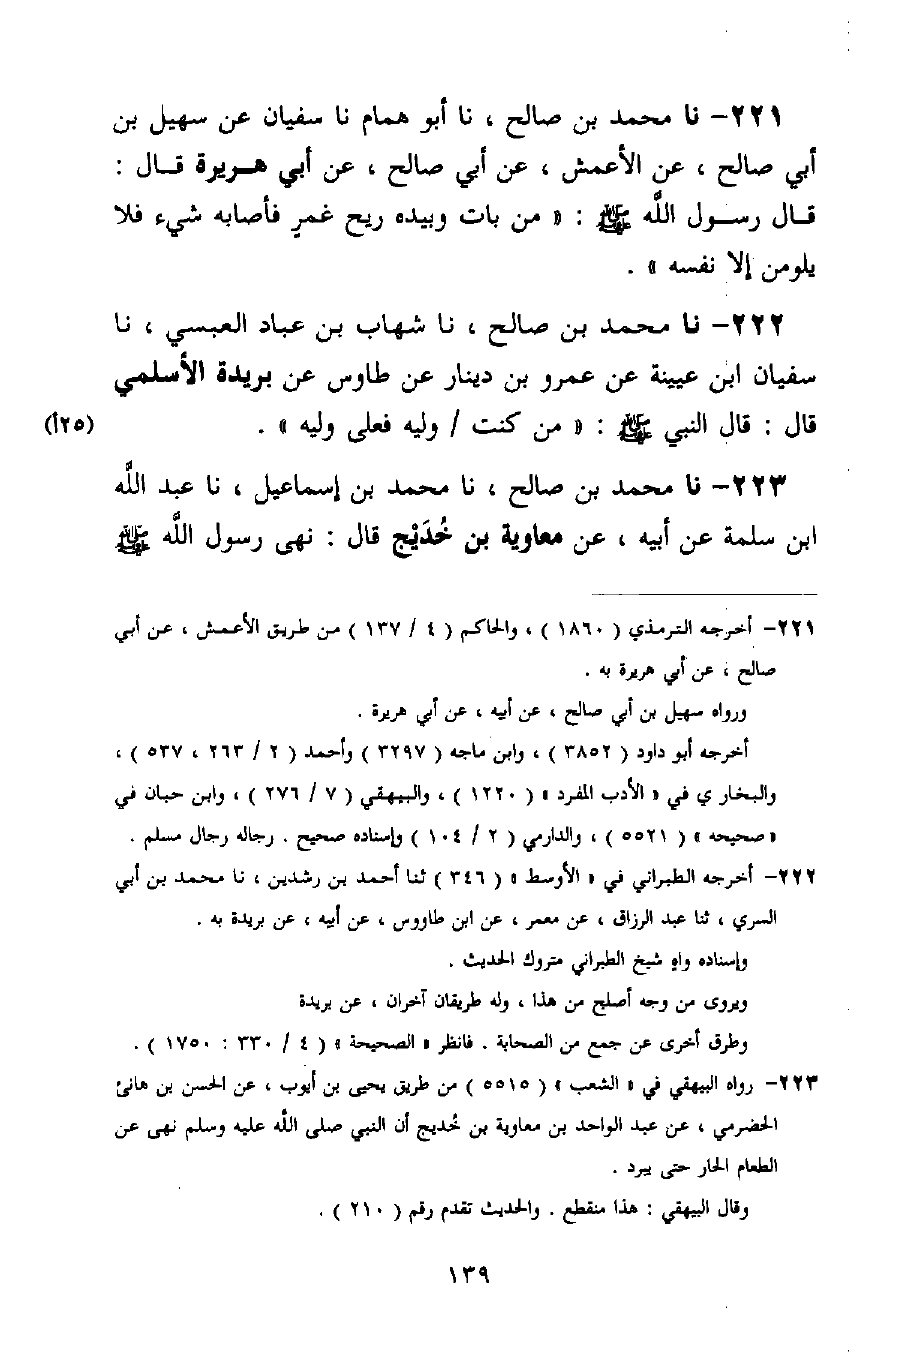 ٢٢١- نا محمد بن صالح ، نا أبو همام نا سفيان عن سهيل بن
أبي صالح ، عن الأعمش ، عن أبي صالح ، عن أبي هريرة قال :
قال رسول اللَّه ﷺ : « من بات وبيده ريح غمرٍ فأصابه شيء فلا
يلومن إلا نفسه » .
٢٢٢- نا محمد بن صالح ، نا شهاب بن عباد العبسي ، نا
سفيان ابن عيينة عن عمرو بن دينار عن طاوس عن بريدة الأسلمي
قال : قال النبي ﷺ : « من كنت / وليه فعلى وليه » . (٢٥أ)
٢٢٣- نا محمد بن صالح ، نا محمد بن إسماعيل ، نا عبد اللَّه
ابن سلمة عن أبيه ، عن معاوية بن خُدَيْج قال : نهى رسول اللَّه ﷺ
٢٢١- أخرجه الترمذي ( ١٨٦٠ ) ، والحاكم ( ٤ / ١٣٧ ) من طريق الأعمش ، عن أبي
صالح ، عن أبي هريرة به .
ورواه سهيل بن أبي صالح ، عن أبيه ، عن أبي هريرة .
أخرجه أبو داود ( ٣٨٥٢ ) ، وابن ماجه ( ٣٢٩٧ ) وأحمد ( ٢ / ٢٦٣ ، ٥٣٧ ) ،
والبخار ي في « الأدب المفرد » ( ١٢٢٠ ) ، والبيهقي ( ٧ / ٢٧٦ ) ، وابن حبان في
« صحيحه » ( ٥٥٢١ ) ، والدارمي ( ٢ / ١٠٤ ) وإسناده صحيح . رجاله رجال مسلم .
٢٢٢- أخرجه الطبراني في « الأوسط » ( ٣٤٦ ) ثنا أحمد بن رشدين ، نا محمد بن أبي
السري ، ثنا عبد الرزاق ، عن معمر ، عن ابن طاووس ، عن أبيه ، عن بريدة به .
وإسناده واهٍ شيخ الطبراني متروك الحديث .
ويروى من وجه أصلح من هذا ، وله طريقان آخران ، عن بريدة
وطرق أخرى عن جمع من الصحابة . فانظر « الصحيحة » ( ٤ / ٣٣٠ : ١٧٥٠ ) .
٢٢٣- رواه البيهقي في « الشعب » ( ٥٥١٥ ) من طريق يحيى بن أيوب ، عن الحسن بن هانئ
الحضرمي ، عن عبد الواحد بن معاوية بن خُديج أن النبي صلى اللَّه عليه وسلم نهى عن
الطعام الحار حتى يبرد .
وقال البيهقي : هذا منقطع . والحديث تقدم رقم ( ٢١٠ ) .
١٣٩